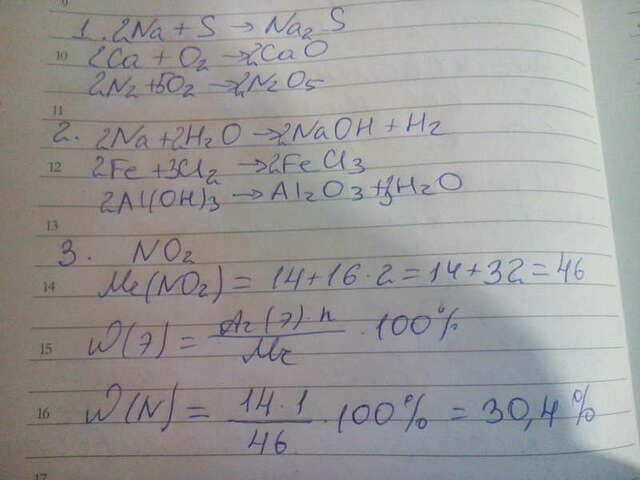 1. 2Na + S → Na2S
10 2Ca + O2 → 2CaO
2N2 + 5O2 → 2N2O5
11
2. 2Na + 2H2O → 2NaOH + H2
12 2Fe + 3Cl2 → 2FeCl3
2Al(OH)3 → Al2O3 + 3H2O
13
3. NO2
14 Mr(NO2) = 14 + 16 · 2 = 14 + 32 = 46
15 W(э) = Ar(э) · n / Mr · 100%
16 W(N) = 14 · 1 / 46 · 100% = 30,4%
17